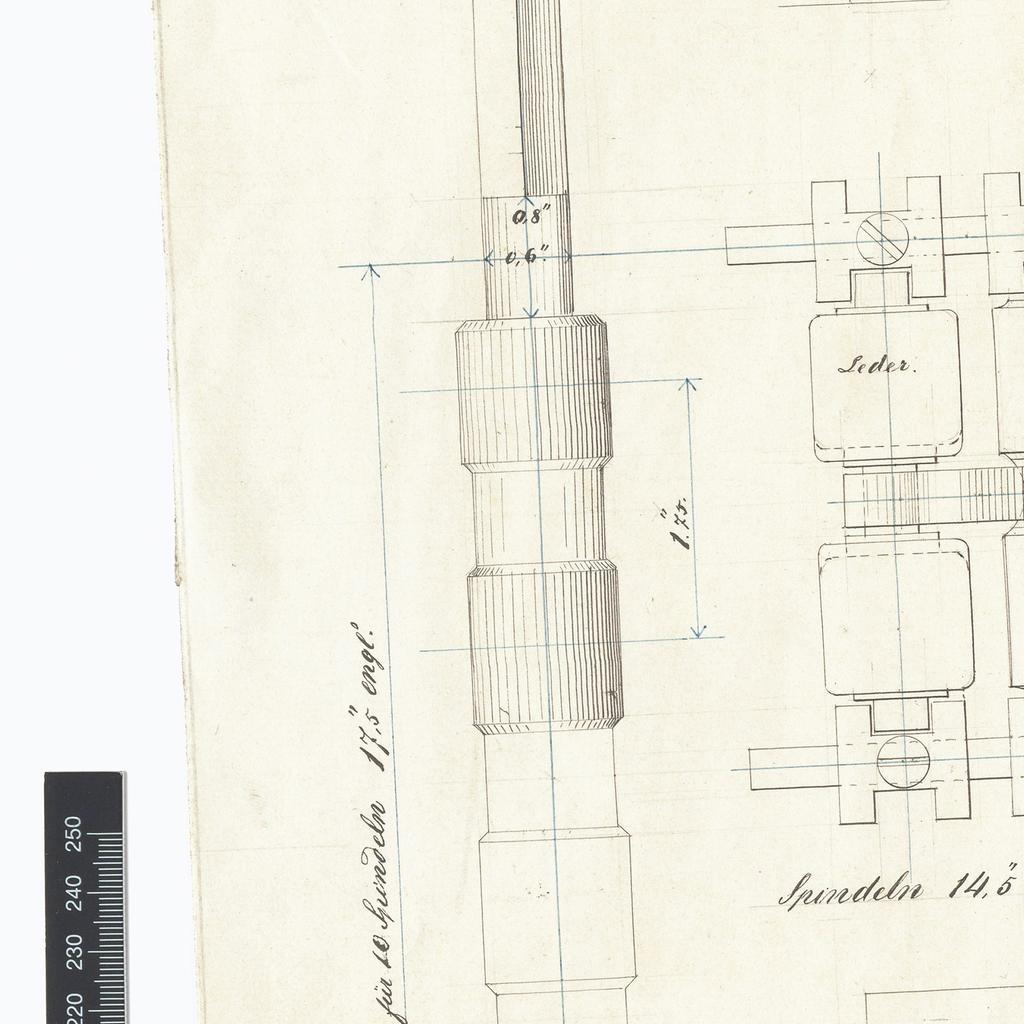 0,8"
0,6"
Leder.
1."75.
für 10 Spindeln 17,"5 engl.
Spindeln 14,"5
250
240
230
220